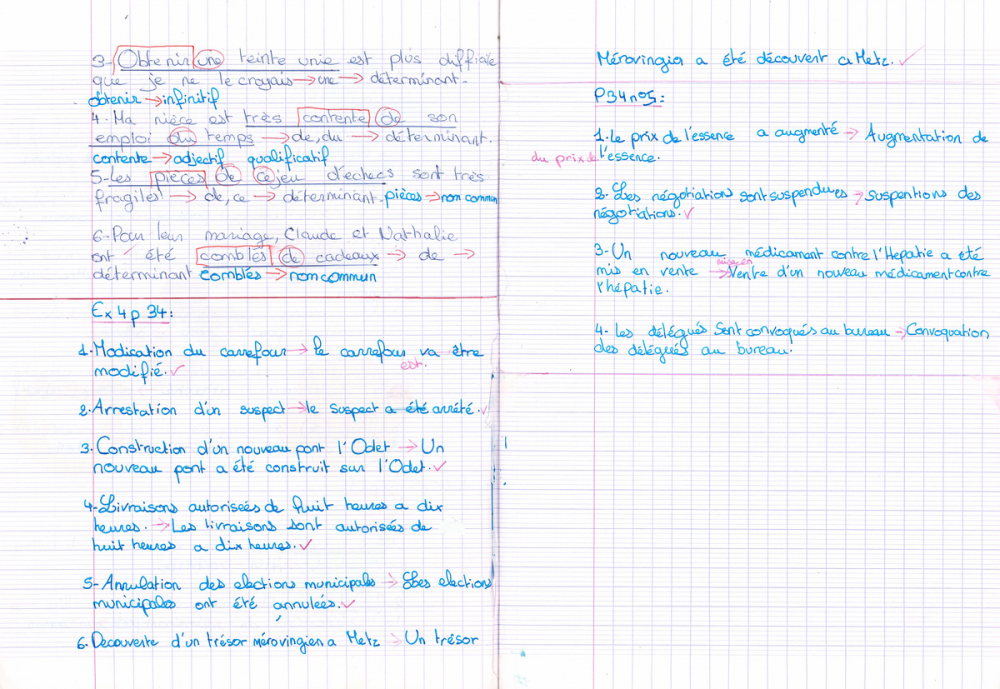 3- Obtenir une teinte unie est plus difficile
que je ne le croyais → une → déterminant.
obtenir → infinitif
4. Ma nièce est très contente de son
emploi du temps → de, du → déterminant.
contente → adjectif qualificatif
5- Les pièces de ce jeu d'échecs sont très
fragiles! → de, ce → déterminant. pièces → nom commun
6- Pour leur mariage, Claude et Nathalie
ont été comblés de cadeaux → de →
déterminant comblés → nom commun
Ex 4 p 34:
1. Modication du carrefour → le carrefour va être
modifié. ✓ est.
2. Arrestation d'un suspect → le suspect a été arrêté. ✓
3. Construction d'un nouveau pont l'Odet → Un
nouveau pont a été construit sur l'Odet. ✓
4- Livraisons autorisées de huit heures a dix
heures. → Les livraisons sont autorisées de
huit heures a dix heures. ✓
5- Annulation des elections municipales → Les elections
municipales ont été annulées. ✓
6. Decouverte d'un trésor mérovingien a Metz → Un trésor
Mérovingien a été découvert a Metz. ✓
P34 n°5:
1. Le prix de l'essence a augmenté → Augmentation de
du prix de l'essence.
2. Les négotiations sont suspendues → Suspentions des
négotiations. ✓
3. Un nouveau médicament contre l'Hepatie a été
mis en vente → mise en Ventre d'un nouveau médicament contre
l'hépatie.
4. Les délégués sont convoqués au bureau → Convoquation
des délégués au bureau.